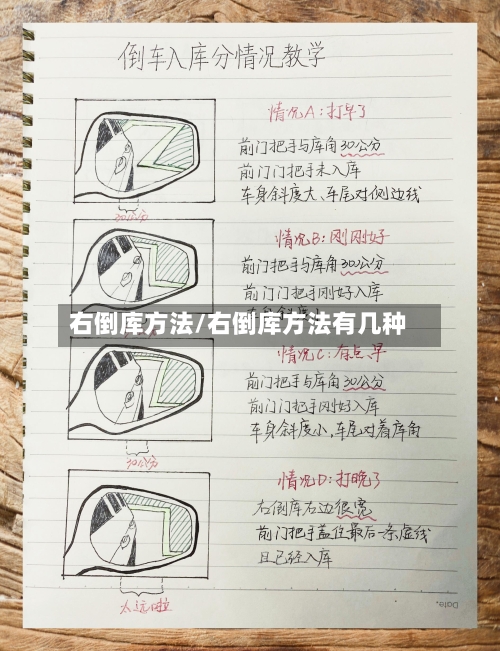 倒车入库分情况教学
情况A:打早了
前门把手与库角30公分
前门门把手未入库
车身斜度大、车尾对侧边线
30公分
情况B:刚刚好
前门把手与库角30公分
前门门把手刚好入库
右倒库方法/右倒库方法有几种
情况C:有点早
前门把手与库角30公分
前门门把手刚好入库
车身斜度小,车尾对着库角
70公分
情况D:打晚了
右倒库右边很宽
前门把手盖住最后一条虚线
且已经入库
太远啦
Date.